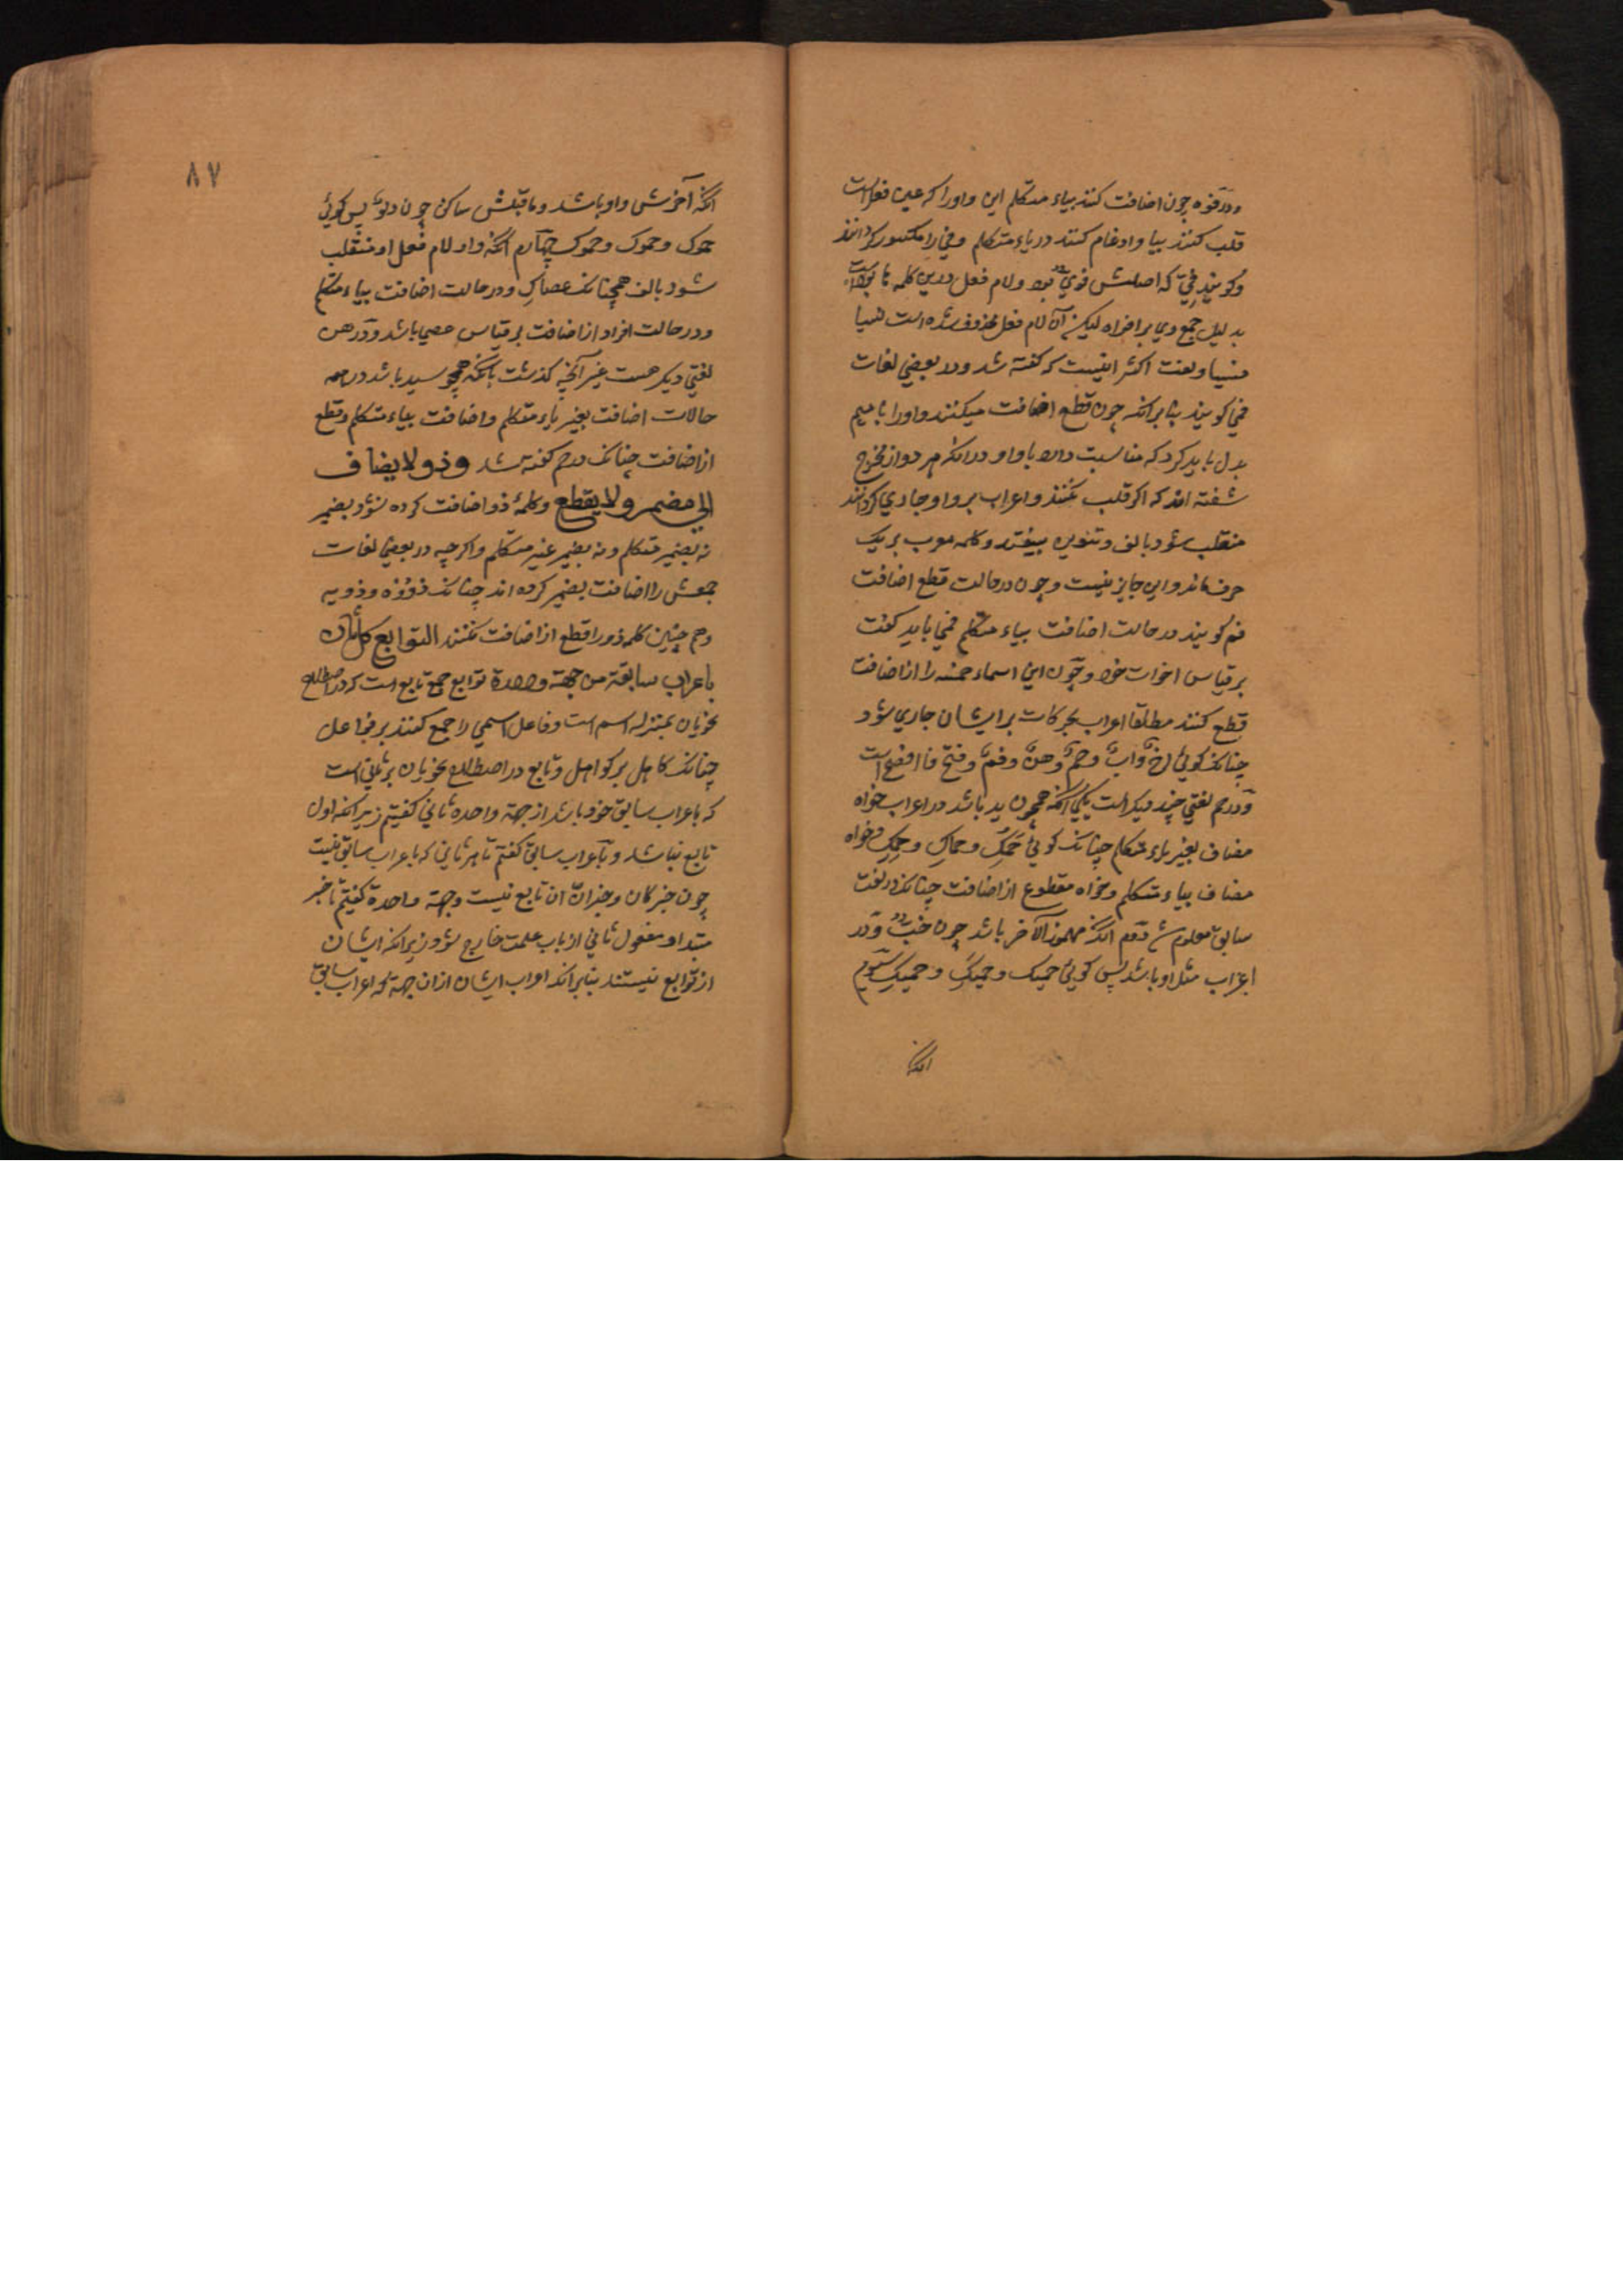 ودر فوه چون اضافت کنند بیاء متکلم این واو را که عین فعل است
قلب کنند بیا وادغام کنند در یاء متکلم وفی را مکسور کردانند
وکویند فیّ که اصلش فوی بود ولام فعل درین کلمه ها بوده است
بدلیل جمع وی بر افواه لیکن آن لام فعل محذوف شده است نسیا
منسیا ولغت اکثر اینست که کفته شد ودر بعضی لغات
فمی کویند بنا بر انکه چون قطع اضافت میکنند واو را با میم
بدل باید کرد که مناسبت دارد با واو در انکه هر دو از مخرج
شفة اند که اکر قلب نکنند واعراب بر واو جاری کردانند
منقلب شود بالف وتنوین بیفتد وکلمه معرب بر یک
حرف ماند واین جایز نیست وچون در حالت قطع اضافت
فم کویند در حالت اضافت بیاء متکلم فمی باید کفت
بر قیاس اخوات خود وچون این اسماء خمسه را از اضافت
قطع کنند مطلقا اعراب بحرکات بر ایشان جاری شود
چنانک کویی اخٌ وابٌ وحمٌ وهنٌ وفمٌ وفتح فا افصح است
ودر حم لغتی چند دیکر است یکی انکه همچون ید باشد در اعراب خواه
مضاف بغیر یاء متکلم چنانک کویی حمُک وحمَک وحمِک وخواه
مضاف بیاء متکلم وخواه مقطوع از اضافت چنانک در لغت
سابق معلوم شد دوم انکه مهموز الآخر باشد چون خبء ودر
اعراب مثل او باشد پس کویی حمیک وحمیک وحمیک سیوم
انکه
٨٧
انکه آخرش واو باشد وما قبلش ساکن چون دلو پس کویی
حموک وحموک وحموک چهارم انکه واو لام فعل او منقلب
شود بالف همچنانک عصاک ودر حالت اضافت بیاء متکلم
ودر حالت افراد از اضافت بر قیاس عصی باشد ودر هن
لغتی دیکر هست غیر آنچه کذشت بانکه همچو ید باشد در همه
حالات اضافت بغیر یاء متکلم واضافت بیاء متکلم وقطع
از اضافت چنانک در حم کفته شد وذو لا یضاف
الی مضمر ولا یقطع وکلمهٔ ذو اضافت کرده نشود بضمیر
نه بضمیر متکلم ونه بضمیر غیر متکلم واکرچه در بعضی لغات
جمعش را اضافت بضمیر کرده اند چنانک ذووه وذویه
وهم چنین کلمه ذو را قطع از اضافت نکنند التوابع کل ثان
باعراب سابقه من جهة واحدة توابع جمع تابع است که در اصطلاح
نحویان بمنزله اسم است وفاعل اسمی را جمع کنند بر فواعل
چنانک کاهل بر کواهل وتابع در اصطلاح نحویان هر ثانی است
که باعراب سابق خود باشد از جهة واحده ثانی کفتیم زیرا که اول
تابع نباشد وباعراب سابق کفتیم تا هر ثانی که باعراب سابق نیست
چون خبر کان وخبر انّ ان تابع نیست وجهة واحدة کفتیم تا خبر
مبتدا ومفعول ثانی از باب علمت خارج شود زیرا که ایشان
از توابع نیستند بنا بر انکه اعراب ایشان از ان جهة که اعراب سابق